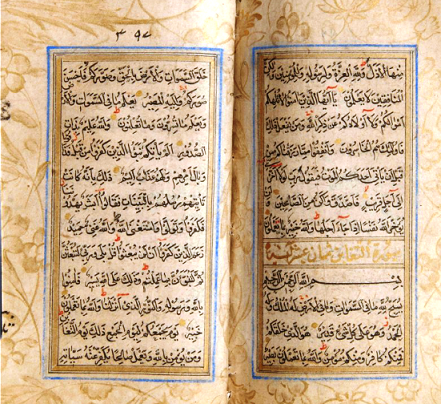 منها الاذل ولله العزة ولرسوله وللمؤمنين ولكن
المنافقين لا يعلمون يا ايها الذين امنوا لا تلهكم
اموالكم ولا اولادكم عن ذكر الله ومن يفعل ذلك
فاولئك هم الخاسرون وانفقوا مما رزقناكم من
قبل ان ياتى احدكم الموت فيقول رب لولا اخرتنى
الى اجل قريب فاصدق واكن من الصالحين ولن
يؤخر الله نفسا اذا جاء اجلها والله خبير بما تعملون
سورة التغابن ثمان عشر اية
بسم الله الرحمن الرحيم
يسبح لله ما فى السموات وما فى الارض له الملك وله
الحمد وهو على كل شئ قدير هو الذى خلقكم
فمنكم كافر ومنكم مؤمن والله بما تعملون بصير
خلق السموات والارض بالحق وصوركم فاحسن
صوركم واليه المصير يعلم ما فى السموات والارض
ويعلم ما تسرون وما تعلنون والله عليم بذات
الصدور الم ياتكم نبؤا الذين كفروا من قبل فذاقوا
وبال امرهم ولهم عذاب اليم ذلك بانه كانت
تاتيهم رسلهم بالبينات فقالوا ابشر يهدوننا
فكفروا وتولوا واستغنى الله والله غنى حميد
زعم الذين كفروا ان لن يبعثوا قل بلى وربى لتبعثن
ثم لتنبؤن بما عملتم وذلك على الله يسير فامنوا
بالله ورسوله والنور الذى انزلنا والله بما تعملون
خبير يوم يجمعكم ليوم الجمع ذلك يوم التغابن
ومن يؤمن بالله ويعمل صالحا يكفر عنه سيئاته